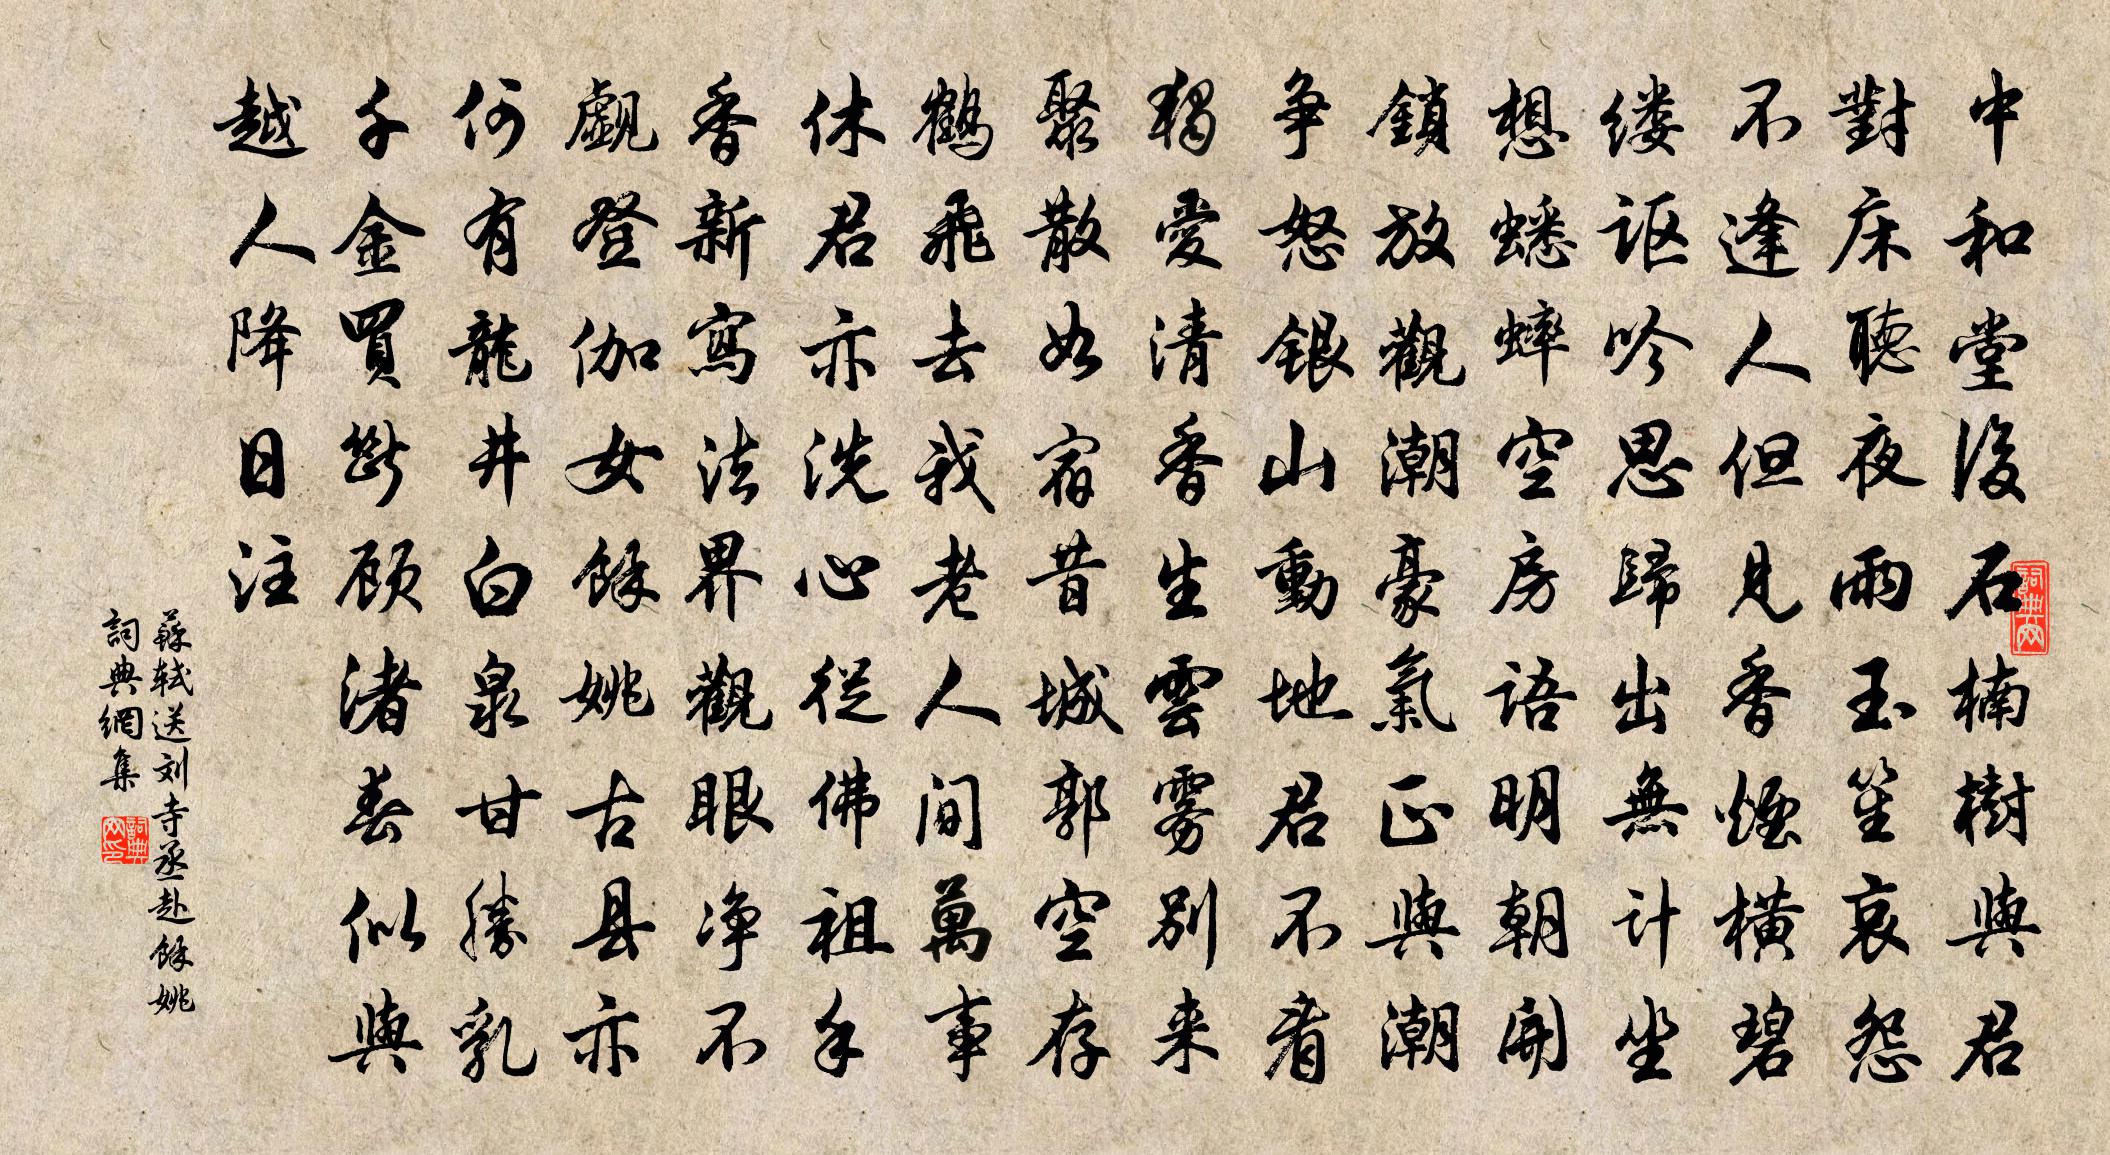 中和堂後石楠樹與君
對床聽夜雨玉笙哀怨
不逢人但見香煙橫碧
缕讴吟思歸出無计坐
想蟋蟀空房语明朝開
鎖放觀潮豪氣正與潮
争怒銀山動地君不看
獨愛清香生雲雾别来
聚散如宿昔城郭空存
鶴飛去我老人间萬事
休君亦洗心從佛祖手
香新寫法界觀眼净不
覷登伽女餘姚古县亦
何有龍井白泉甘勝乳
千金買斷顾渚春似與
越人降日注
蘇轼送刘寺丞赴餘姚
詞典網集
詞典网
詞典网印